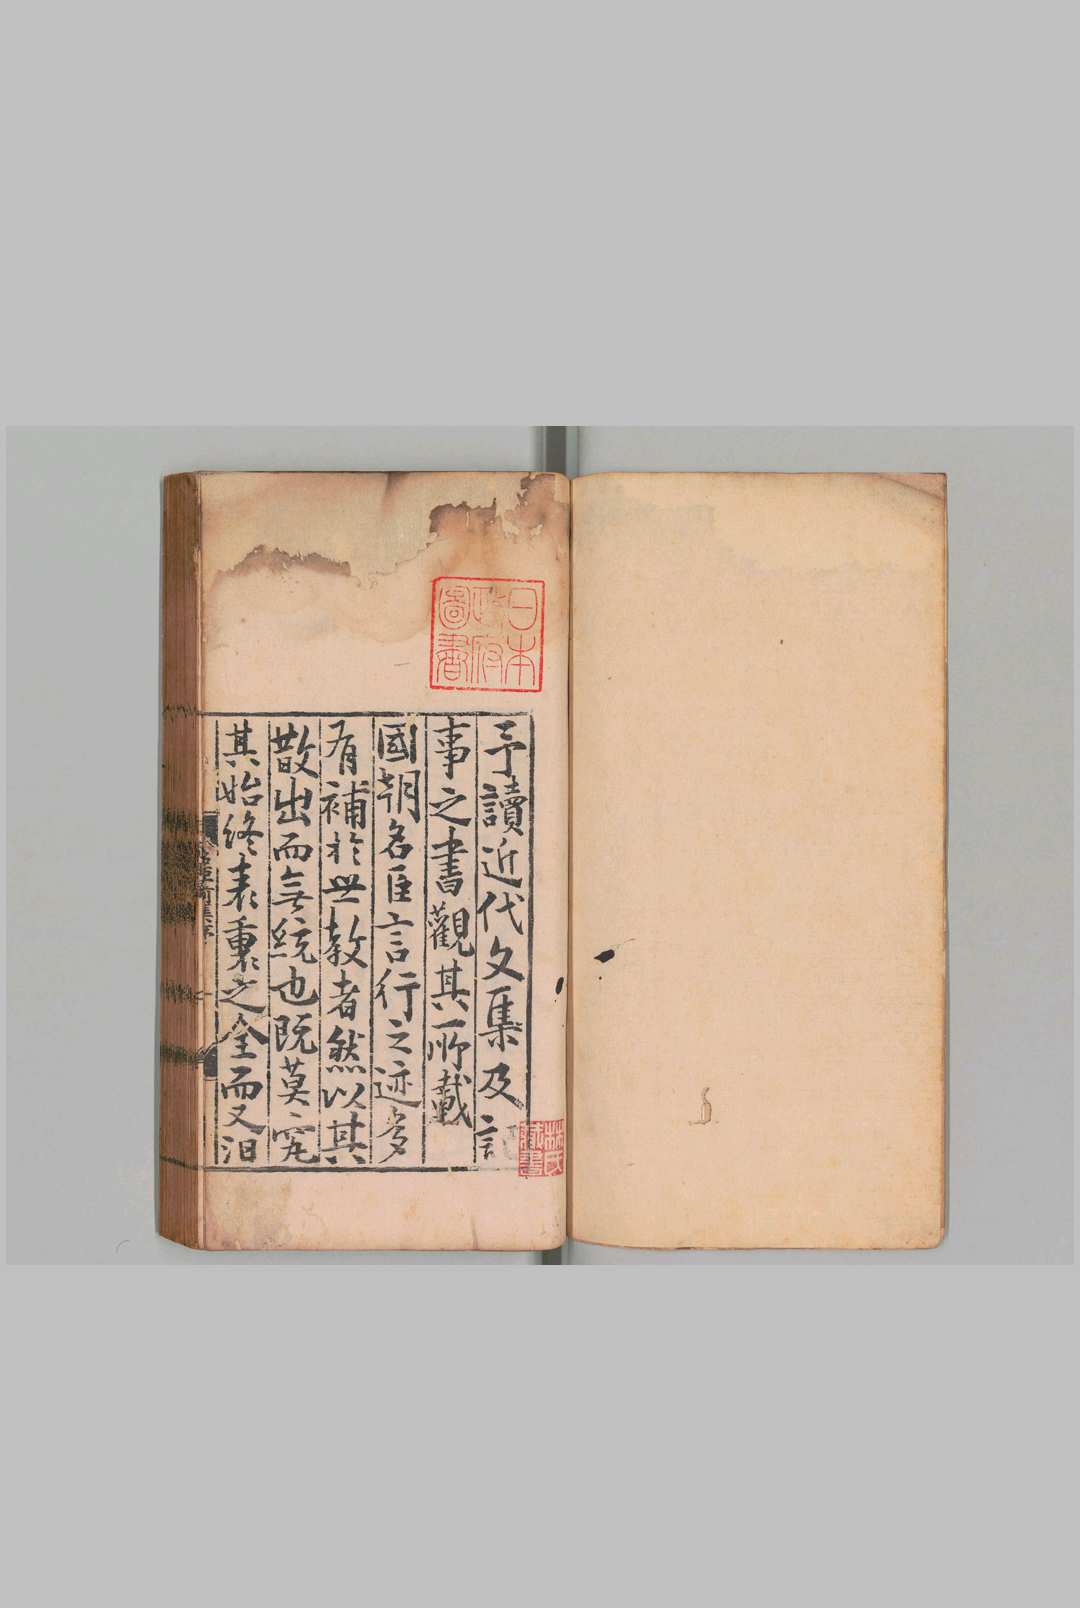 予讀近代文集及記
事之書觀其所載
國朝名臣言行之迹多
有補於世教者然以其
散出而無統也既莫究
其始終表裏之全而又汨
日本
政府
圖書
林氏
藏書